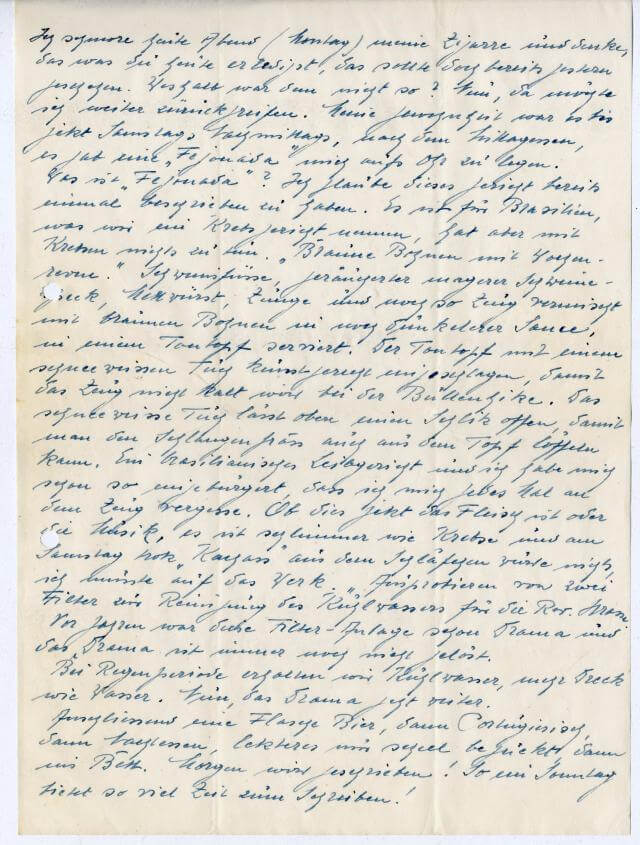 Ich schmore heute Abend (Montag) meine Zijarre und denke,
das was du heute erledigst, das sollte doch bereits gestern
geschehen. Weshalb war dem nicht so? Nun, da möchte
ich weiter zurückgreifen. Meine Gewohnheit war es bis
jetzt Samstags Nachmittags, nach dem Mittagessen,
es gab eine „Fejonada" mich aufs Ohr zu legen.
Was ist „Fejonada"? Ich glaube dieses Gericht bereits
einmal beschrieben zu haben. Es ist für Brasilien,
was wir ein Krebsgericht nennen, hat aber mit
Krebsen nichts zu tun. „Braune Bohnen mit
Schweinsfüsse, geräucherter magerer Schweine-
speck, Mettwurst, Zunge und noch so Zeug vermischt
mit braunen Bohnen in noch dunkelerer Sauce,
in einem Tontopf serviert. Der Tontopf mit einem
schneeweissen Tuch kunstgerecht eingeschlagen, damit
das Zeug nicht kalt wird bei der Bullenhike. Das
schneeweisse Tuch lässt oben einen Schlik offen, damit
man den Schlangenfrass auch aus dem Topf löffeln
kann. Ein brasilianisches Leibgericht und ich habe mich
schon so eingebürgert dass ich mich jedes Mal an
dem Zeug vergesse. Ob dies jetzt das Fleisch ist oder
die Musik, es ist schlimmer wie Krebse und am
Samstag trok aus dem Schläfchen wurde nichts,
ich musste auf das Werk, Ausprobieren von zwei
Filter zur Reinigung des Kühlwassers für die
Vor Jahren war diese Filter-Anlage schon Drama und
das Drama ist immer noch nicht gelöst.
Bei Regenperiode erhalten wir Kühlwasser, mehr Dreck
wie Wasser. Nun, das Drama geht weiter.
Anschliessend eine Flasche Bier, dann Portugiesisch,
dann Nachtessen, lekteres mir schnell begückt dann
ins Bett. Morgen wird geschrieben! So ein Sonntag
bietet so viel Zeit zum Schreiben!